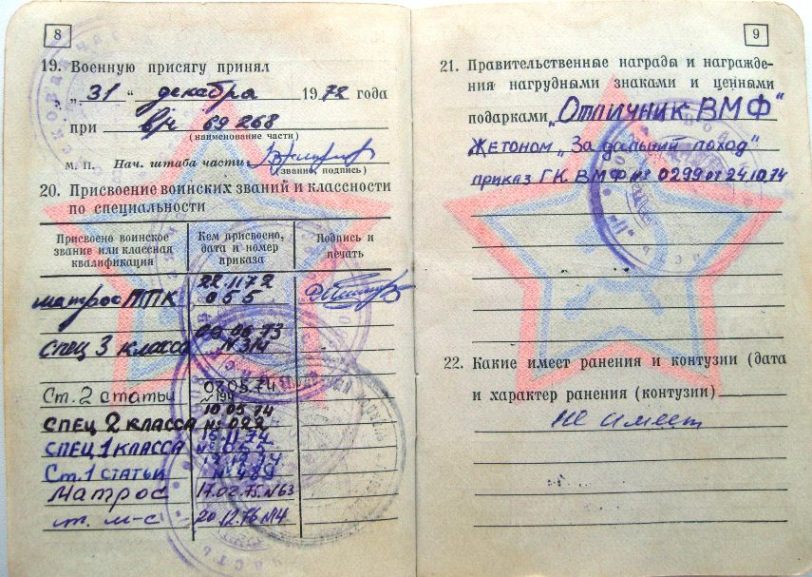 8
19. Военную присягу принял
„ 31 “ декабря 1972 года
при в/ч 69268
(наименование части)
м. п. Нач. штаба части
(звание, подпись)
20. Присвоение воинских званий и классности
по специальности
Присвоено воинское звание или классная квалификация
Кем присвоено, дата и номер приказа
Подпись и печать
22.11.72
матрос ППК 055
09.06.73
спец 3 класса №314
07.05.74
Ст. 2 статьи
10.05.74
СПЕЦ 2 КЛАССА № 092
15.11.74
СПЕЦ 1 КЛАССА
Ст. 1 СТАТЬИ
Матрос 17.02.75. №63
ст. м-с 20.12.76 №4
9
21. Правительственные награды и награжде-
ния нагрудными знаками и ценными
подарками „Отличник ВМФ“
Жетоном „За дальний поход“
приказ ГК ВМФ № 0299 от 24.10.74
22. Какие имеет ранения и контузии (дата
и характер ранения (контузии)
не имеет